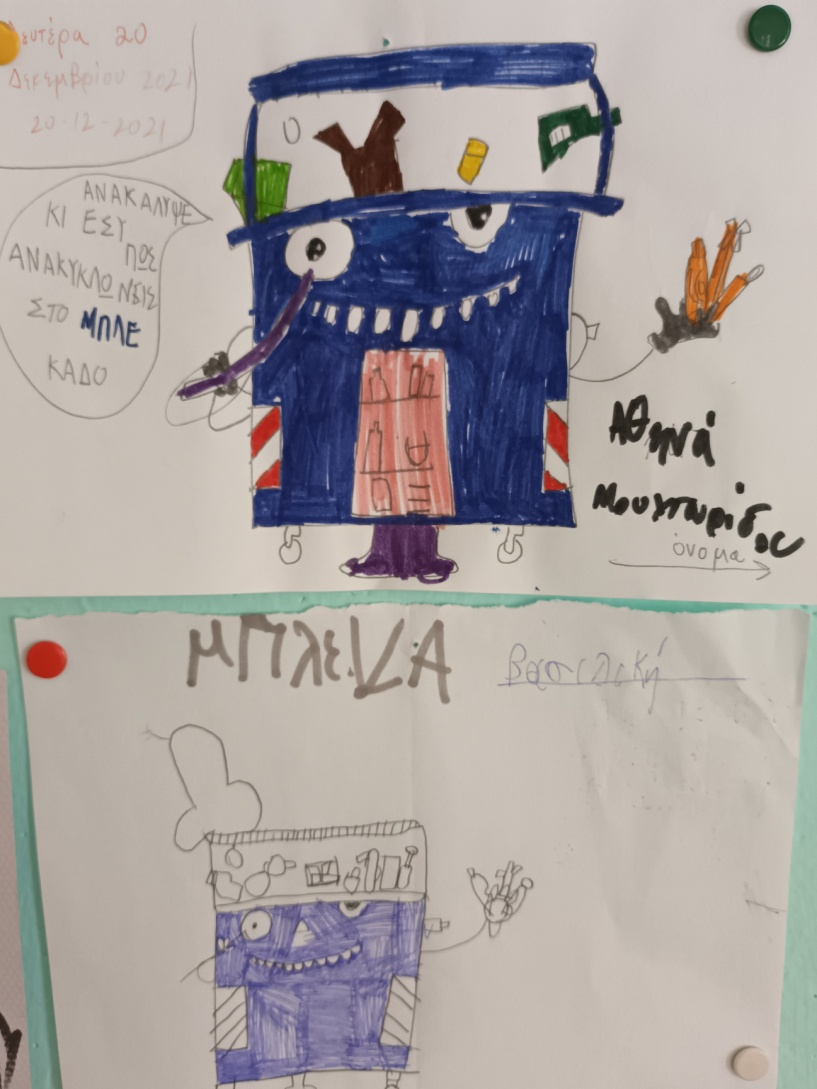 Δευτέρα 20
Δεκεμβρίου 2021
20-12-2021
ΑΝΑΚΑΛΥΨΕ
ΚΙ ΕΣΥ
ΠΩΣ
ΑΝΑΚΥΚΛΩΝΕΙΣ
ΣΤΟ ΜΠΛΕ
ΚΑΔΟ
Αθηνά
όνομα
ΜΠλεΝΔΑ
βασιλική